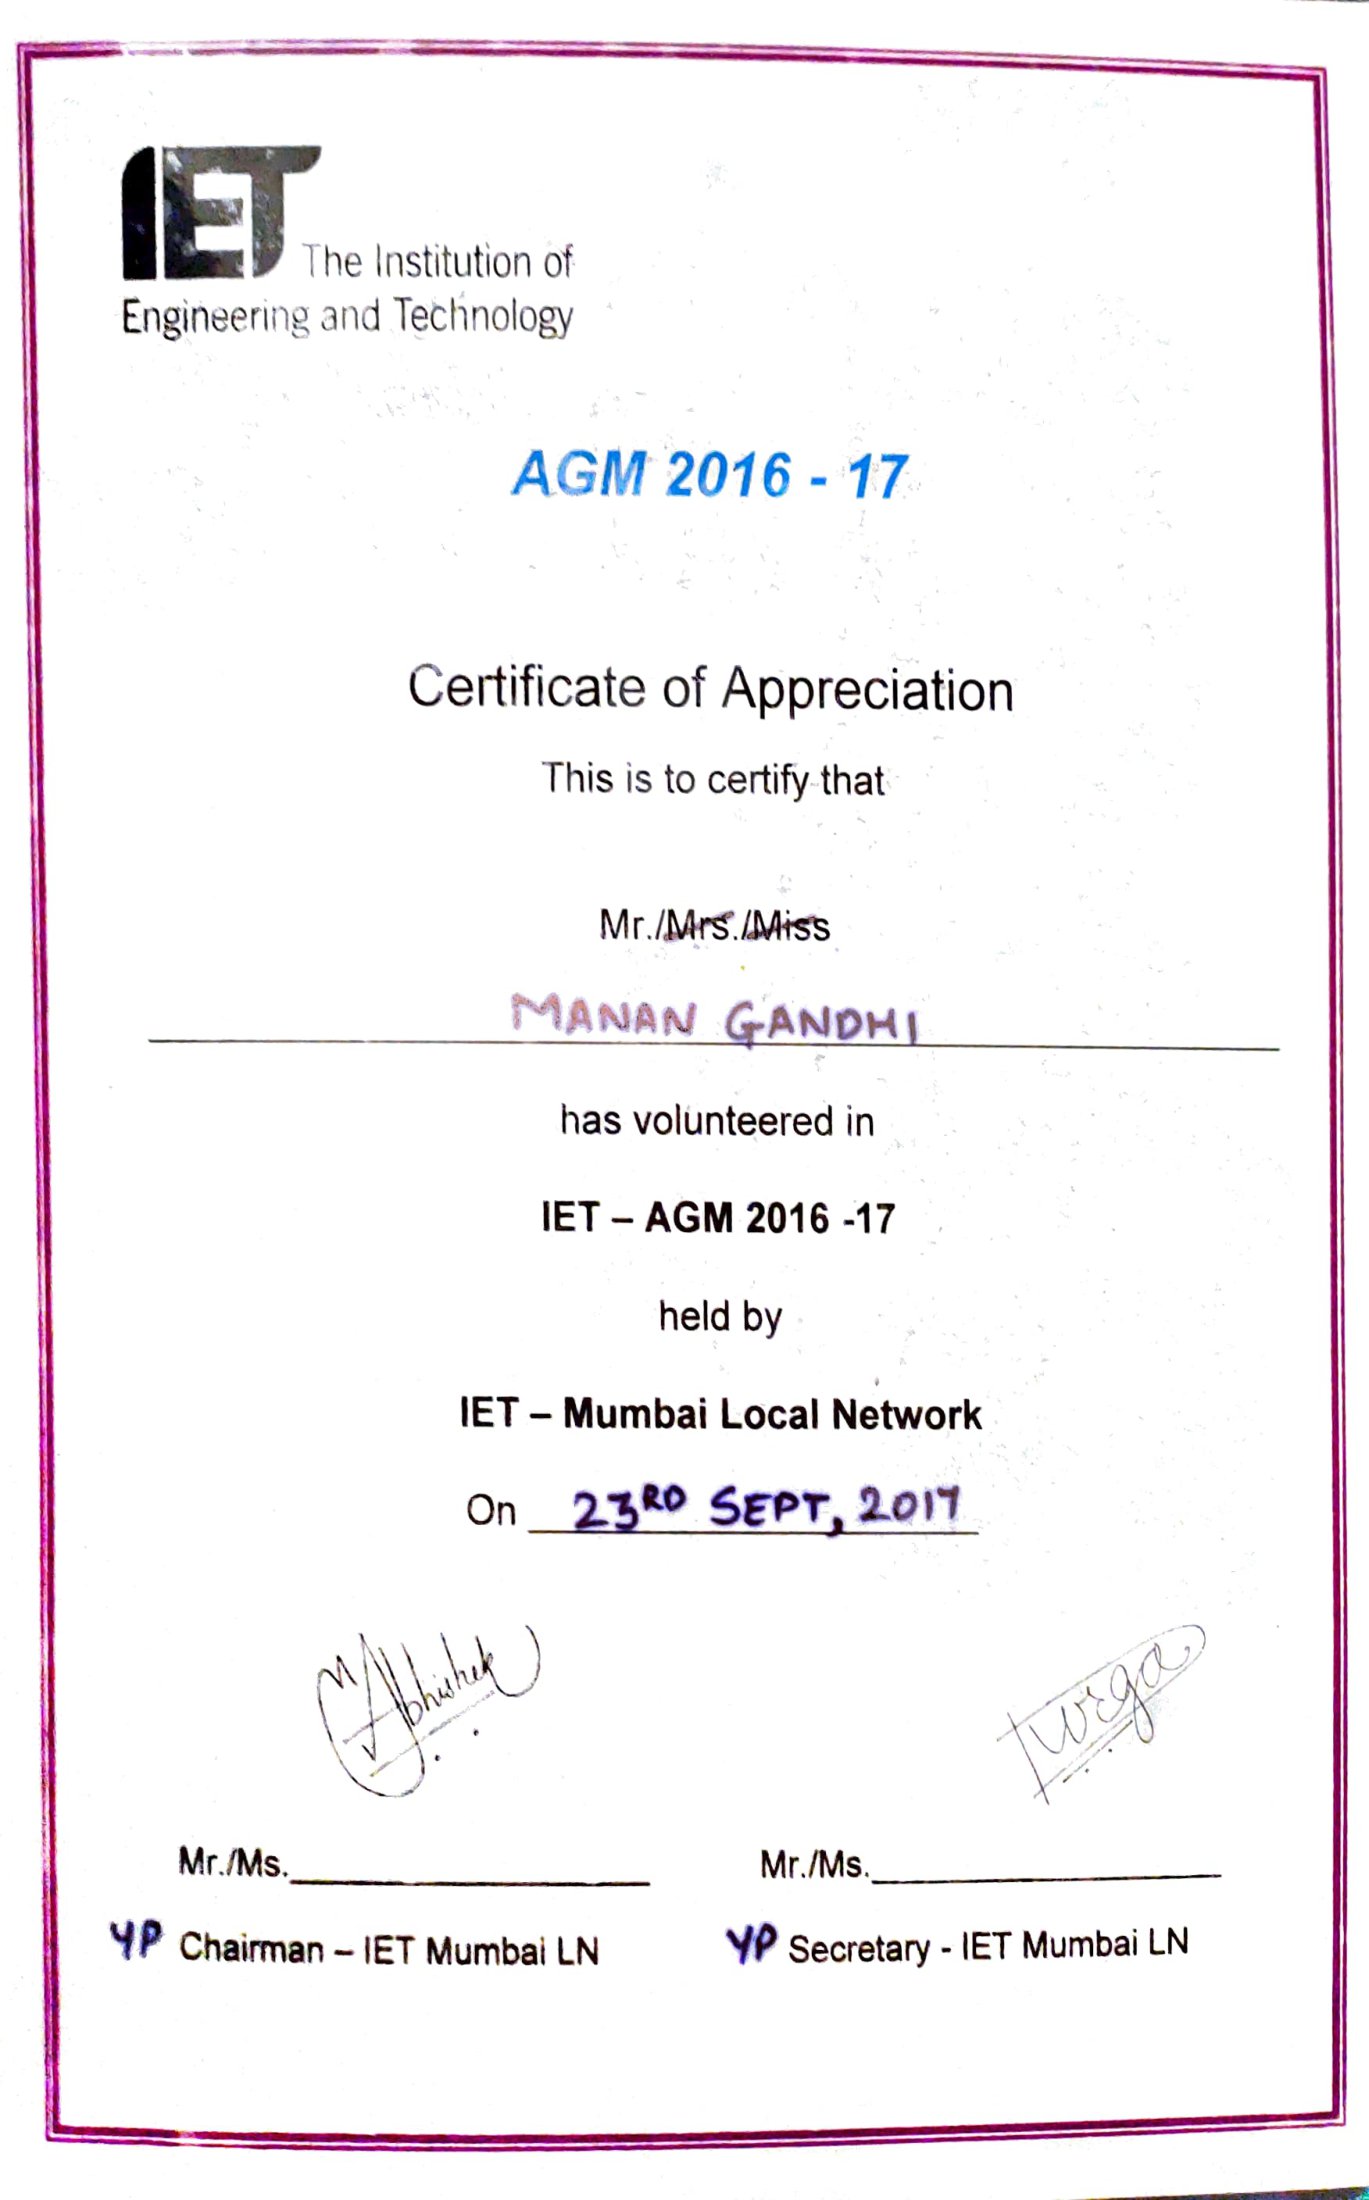 IET The Institution of
Engineering and Technology
AGM 2016 - 17
Certificate of Appreciation
This is to certify that
Mr./Mrs./Miss
MANAN GANDHI
has volunteered in
IET – AGM 2016 -17
held by
IET – Mumbai Local Network
On 23RD SEPT, 2017
Abhishek
Mr./Ms. Mr./Ms.
YP Chairman – IET Mumbai LN YP Secretary - IET Mumbai LN